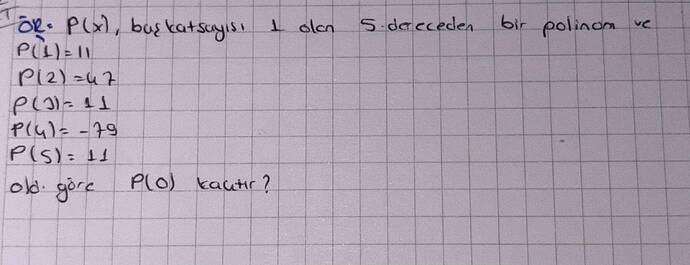 ÖR. P(x), başkatsayısı 1 olan 5.dereceden bir polinom ve
P(1)=11
P(2)=47
P(3)=11
P(4)=-79
P(5)=11
old. göre P(0) kaçtır?